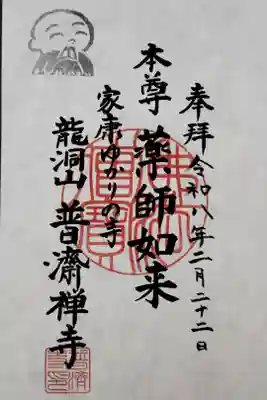 奉拝 令和八年二月二十二日
本尊 薬師如来
家康ゆかりの寺
龍洞山 普濟禅寺
佛法僧寶